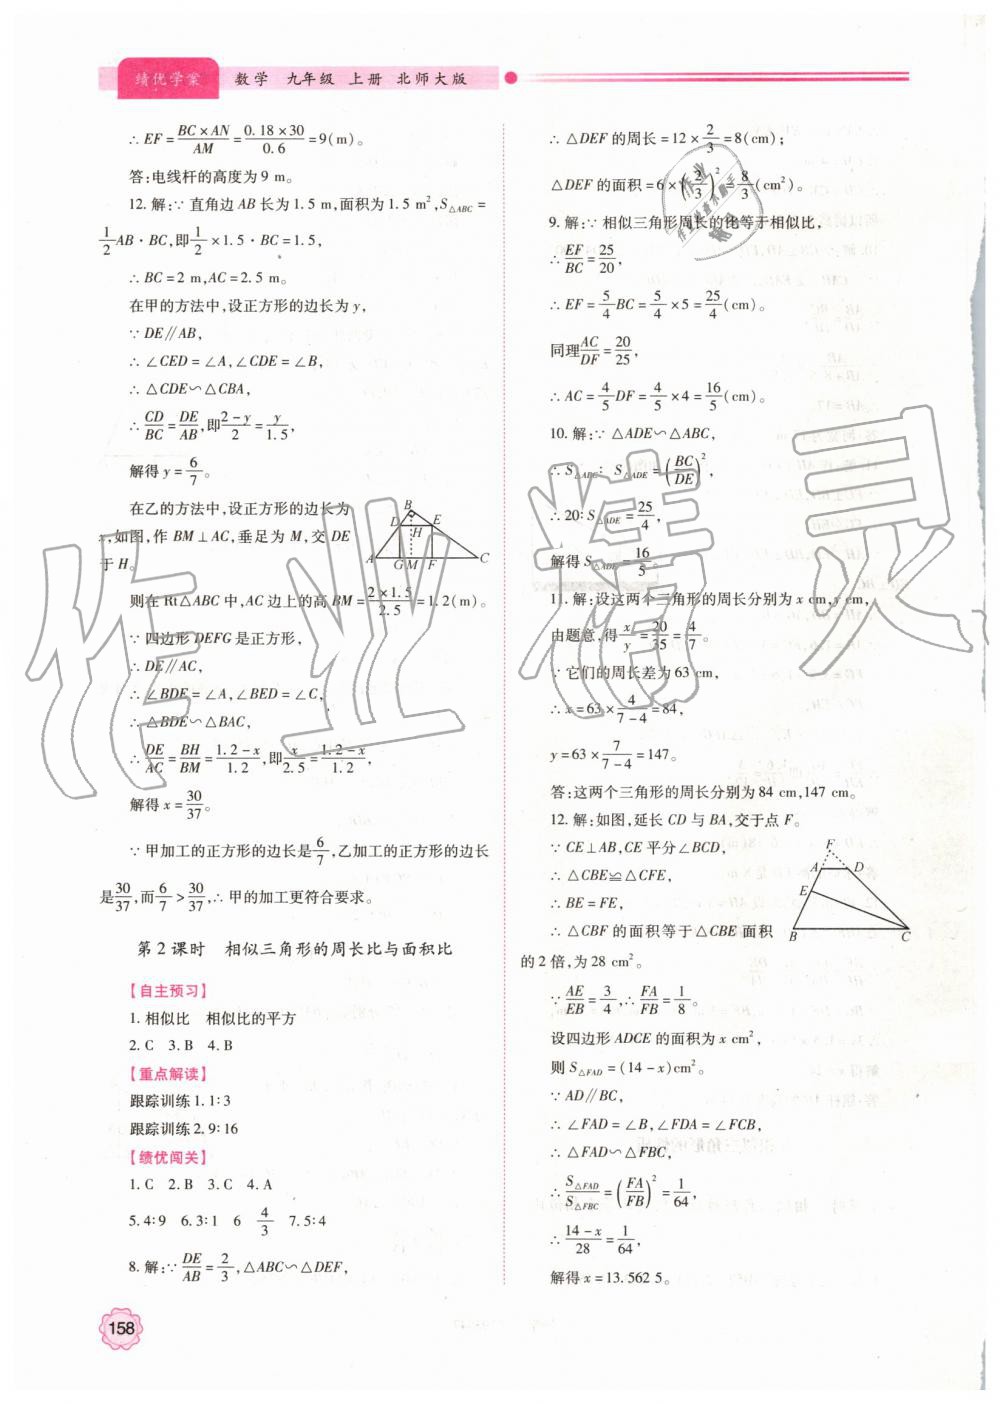 绩优学案 数学 九年级 上册 北师大版
∴ EF = BC × AN / AM = 0.18 × 30 / 0.6 = 9(m)。
答:电线杆的高度为 9 m。
12. 解:∵ 直角边 AB 长为 1.5 m,面积为 1.5 m², S△ABC =
1/2 AB · BC,即 1/2 × 1.5 · BC = 1.5,
∴ BC = 2 m, AC = 2.5 m。
在甲的方法中,设正方形的边长为 y,
∵ DE∥AB,
∴ ∠CED = ∠A, ∠CDE = ∠B,
∴ △CDE∽△CBA,
∴ CD/BC = DE/AB,即 (2 − y)/2 = y/1.5,
解得 y = 6/7。
在乙的方法中,设正方形的边长为
x,如图,作 BM⊥AC,垂足为 M,交 DE
于 H。
B
D E
H
A G M F C
则在 Rt△ABC 中, AC 边上的高 BM = 2 × 1.5 / 2.5 = 1.2(m)。
∵ 四边形 DEFG 是正方形,
∴ DE∥AC,
∴ ∠BDE = ∠A, ∠BED = ∠C,
∴ △BDE∽△BAC,
∴ DE/AC = BH/BM = (1.2 − x)/1.2,即 x/2.5 = (1.2 − x)/1.2,
解得 x = 30/37。
∵ 甲加工的正方形的边长是 6/7,乙加工的正方形的边长
是 30/37,而 6/7 > 30/37,∴ 甲的加工更符合要求。
第 2 课时 相似三角形的周长比与面积比
【自主预习】
1. 相似比 相似比的平方
2. C 3. B 4. B
【重点解读】
跟踪训练 1. 1∶3
跟踪训练 2. 9∶16
【绩优闯关】
1. C 2. B 3. C 4. A
5. 4∶9 6. 3∶1 6 4/3 7. 5∶4
8. 解:∵ DE/AB = 2/3, △ABC∽△DEF,
158
∴ △DEF 的周长 = 12 × 2/3 = 8(cm);
△DEF 的面积 = 6 × (2/3)² = 8/3(cm²)。
9. 解:∵ 相似三角形周长的比等于相似比,
∴ EF/BC = 25/20,
∴ EF = 5/4 BC = 5/4 × 5 = 25/4(cm)。
同理 AC/DF = 20/25,
∴ AC = 4/5 DF = 4/5 × 4 = 16/5(cm)。
10. 解:∵ △ADE∽△ABC,
∴ S△ABC∶S△ADE = (BC/DE)²,
∴ 20∶S△ADE = 25/4,
解得 S△ADE = 16/5。
11. 解:设这两个三角形的周长分别为 x cm, y cm,
由题意,得 x/y = 20/35 = 4/7。
∵ 它们的周长差为 63 cm,
∴ x = 63 × 4/(7 − 4) = 84,
y = 63 × 7/(7 − 4) = 147。
答:这两个三角形的周长分别为 84 cm, 147 cm。
12. 解:如图,延长 CD 与 BA,交于点 F。
∵ CE⊥AB, CE 平分∠BCD,
∴ △CBE≌△CFE,
∴ BE = FE,
∴ △CBF 的面积等于△CBE 面积
的 2 倍,为 28 cm²。
F
A D
E
B C
∵ AE/EB = 3/4, ∴ FA/FB = 1/8。
设四边形 ADCE 的面积为 x cm²,
则 S△FAD = (14 − x)cm²。
∵ AD∥BC,
∴ ∠FAD = ∠B, ∠FDA = ∠FCB,
∴ △FAD∽△FBC,
∴ S△FAD/S△FBC = (FA/FB)² = 1/64,
∴ (14 − x)/28 = 1/64,
解得 x = 13.562 5。
作业精灵